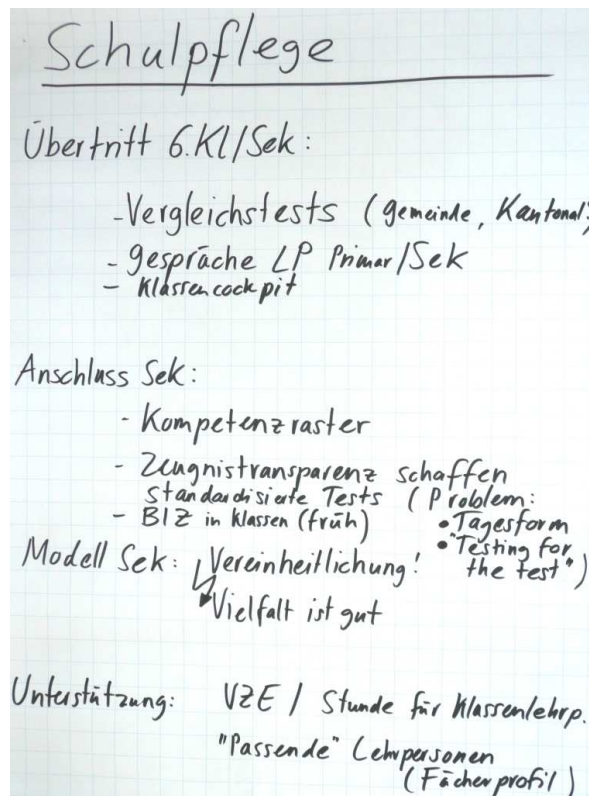 Schulpflege
Übertritt 6.Kl/Sek:
- Vergleichstests (Gemeinde, Kantonal)
- Gespräche LP Primar/Sek
- Klassencockpit
Anschluss Sek:
- Kompetenzraster
- Zeugnistransparenz schaffen
Standardisierte Tests (Problem:
- BIZ in Klassen (früh)
• Tagesform
• "Testing for the test")
Modell Sek: Vereinheitlichung!
Vielfalt ist gut
Unterstützung: VZE / Stunde für Klassenlehrp.
"Passende" Lehrpersonen
(Fächerprofil)